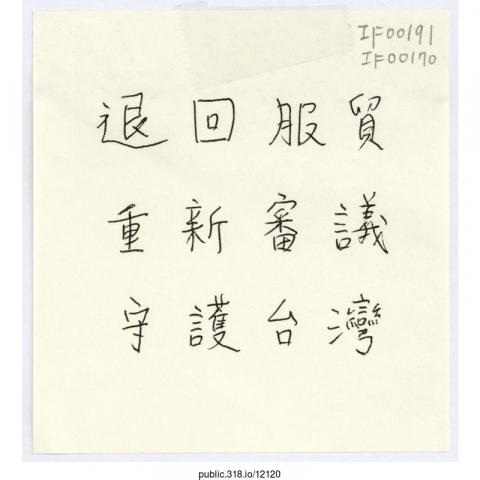 IF00191
IF00170
退回服貿
重新審議
守護台灣
public.318.io/12120